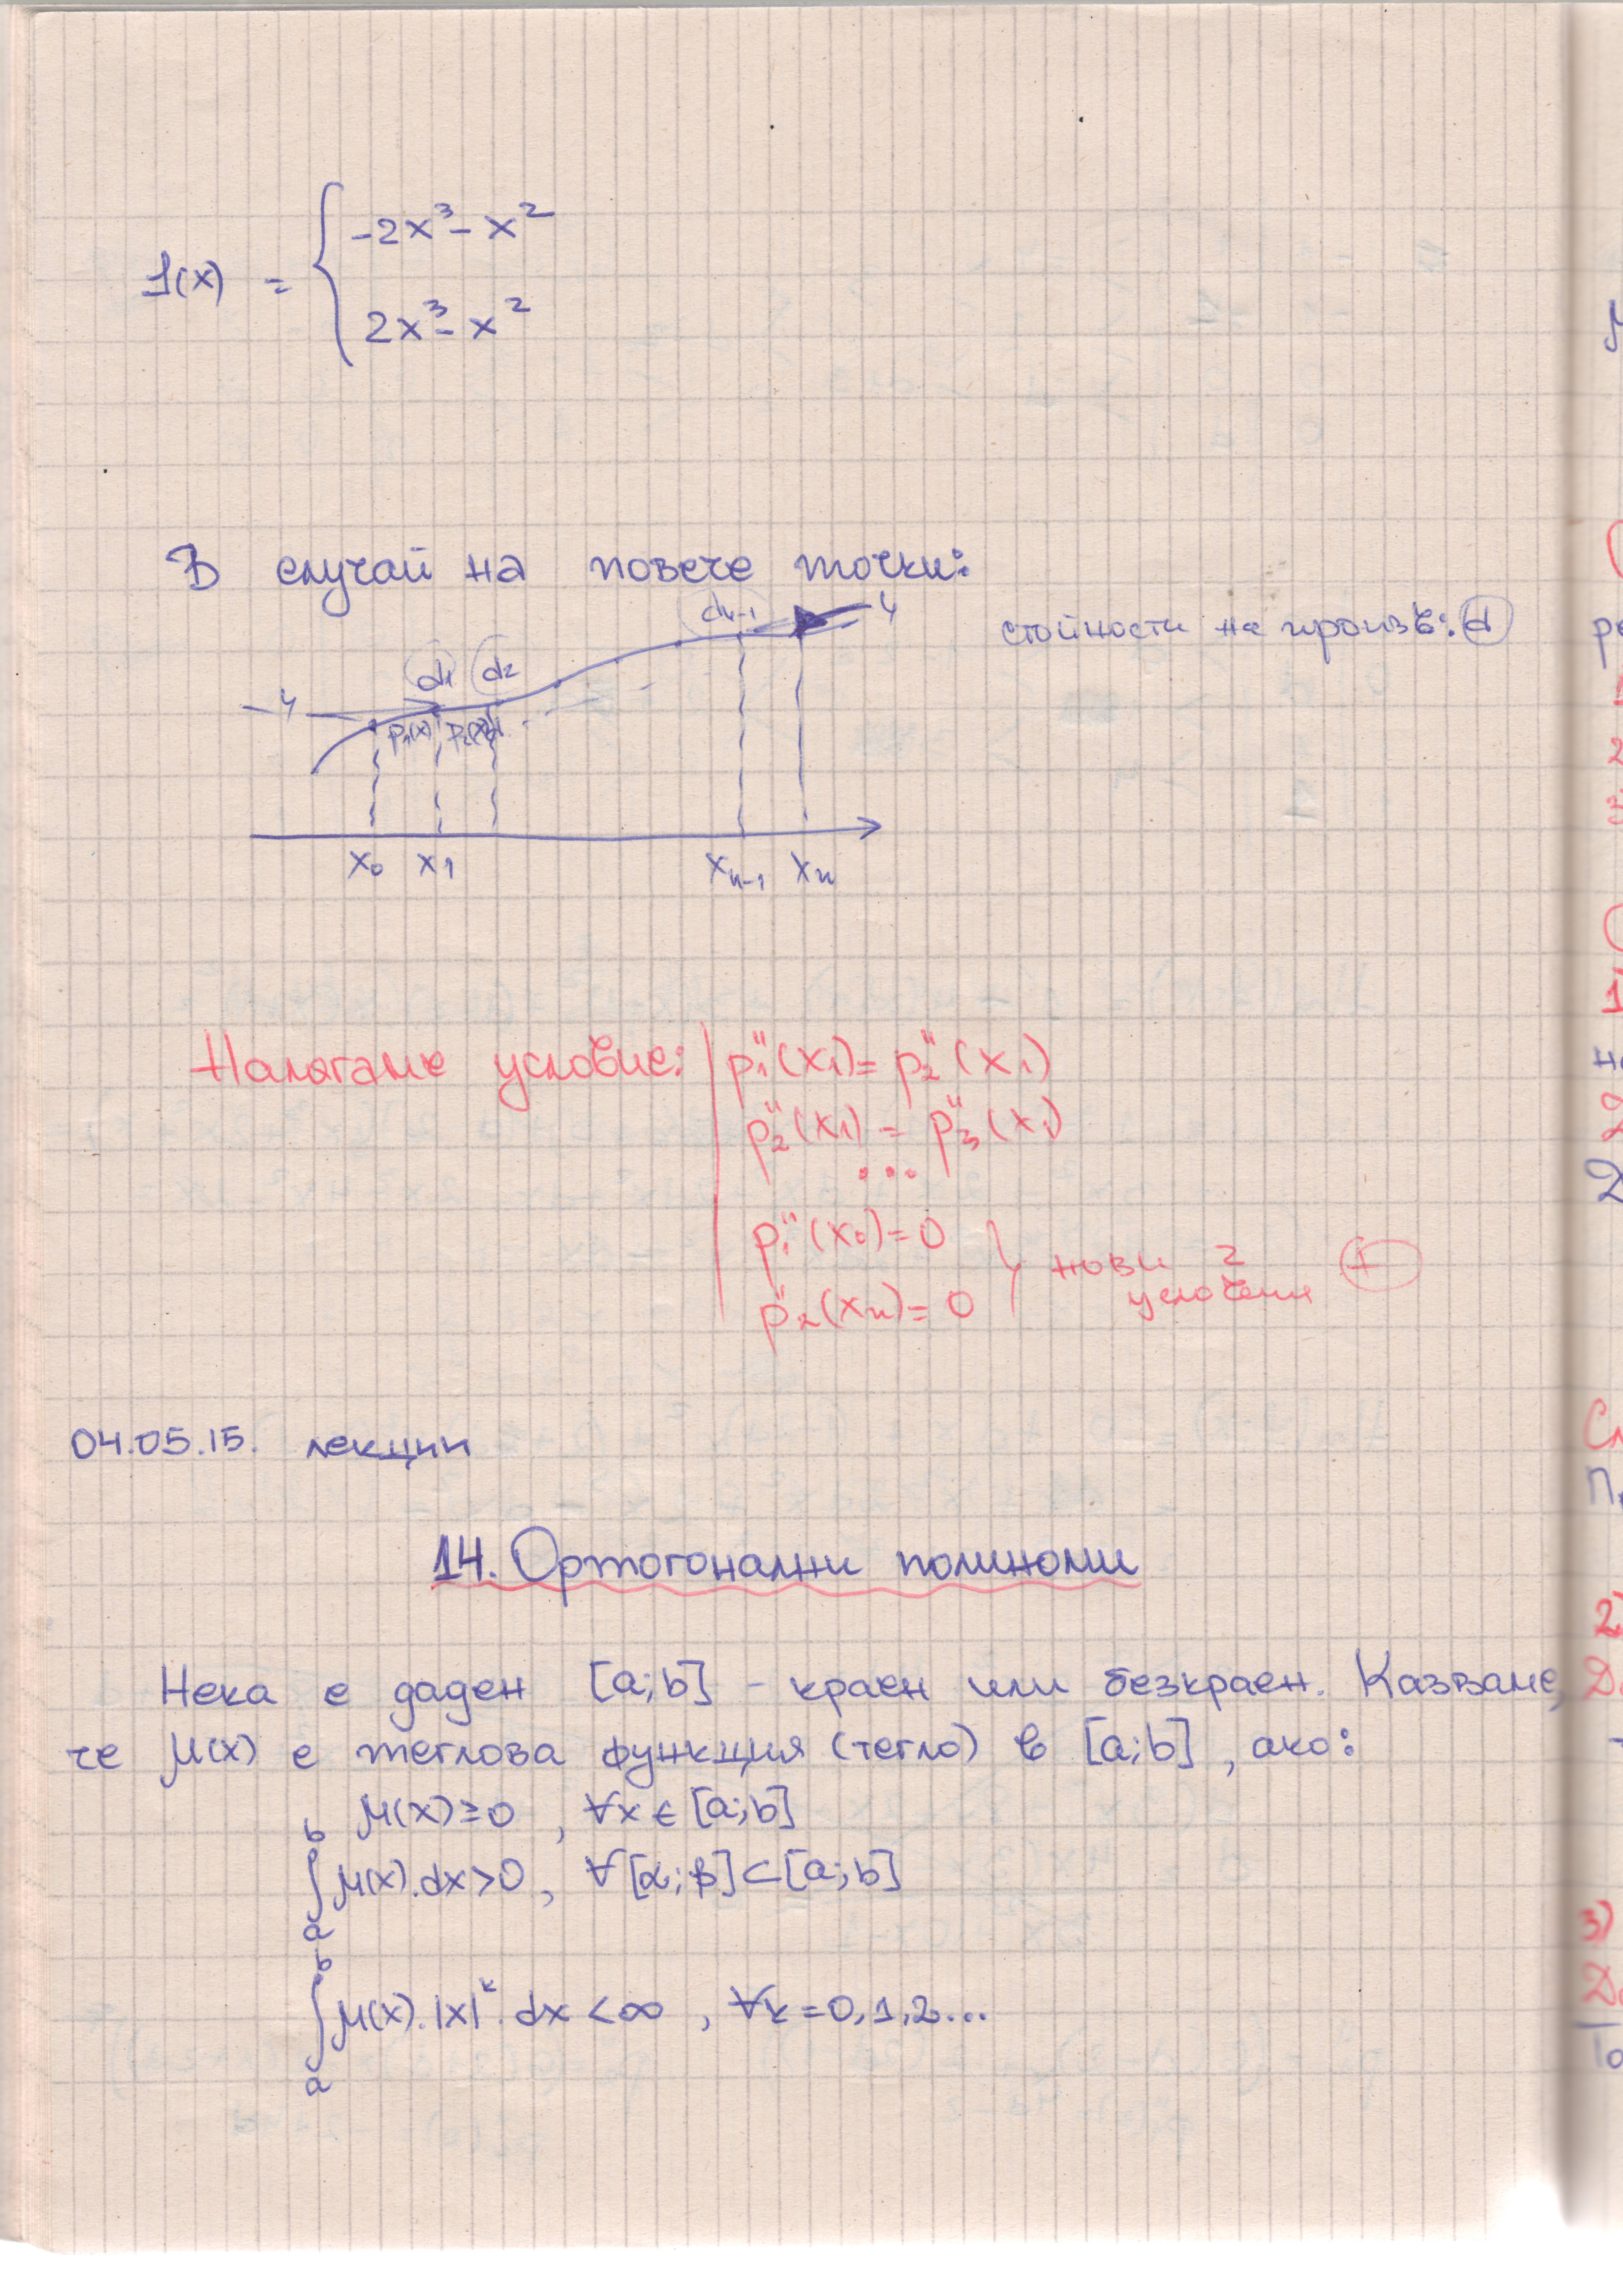 f(x) = { -2x³ - x²
2x³ - x²
В случай на повече точки:
стойности на произв.: d
d₁ d₂ dₙ₋₁ 4
-4
p₁(x) p₂(x)
x₀ x₁ xₙ₋₁ xₙ
Налагаме условие: | p₁''(x₁) = p₂''(x₁)
p₂''(x₁) = p₃''(x₁)
...
p₁''(x₀) = 0
p₂''(xₙ) = 0
нови 2
условия +
04.05.15. лекции
14. Ортогонални полиноми
Нека е даден [a;b] - краен или безкраен. Казваме,
че μ(x) е теглова функция (тегло) в [a;b], ако:
μ(x) ≥ 0, ∀x ∈ [a;b]
∫ₐᵇ μ(x).dx > 0, ∀[α;β] ⊂ [a;b]
∫ₐᵇ μ(x).|x|ᵏ.dx < ∞, ∀k = 0,1,2...